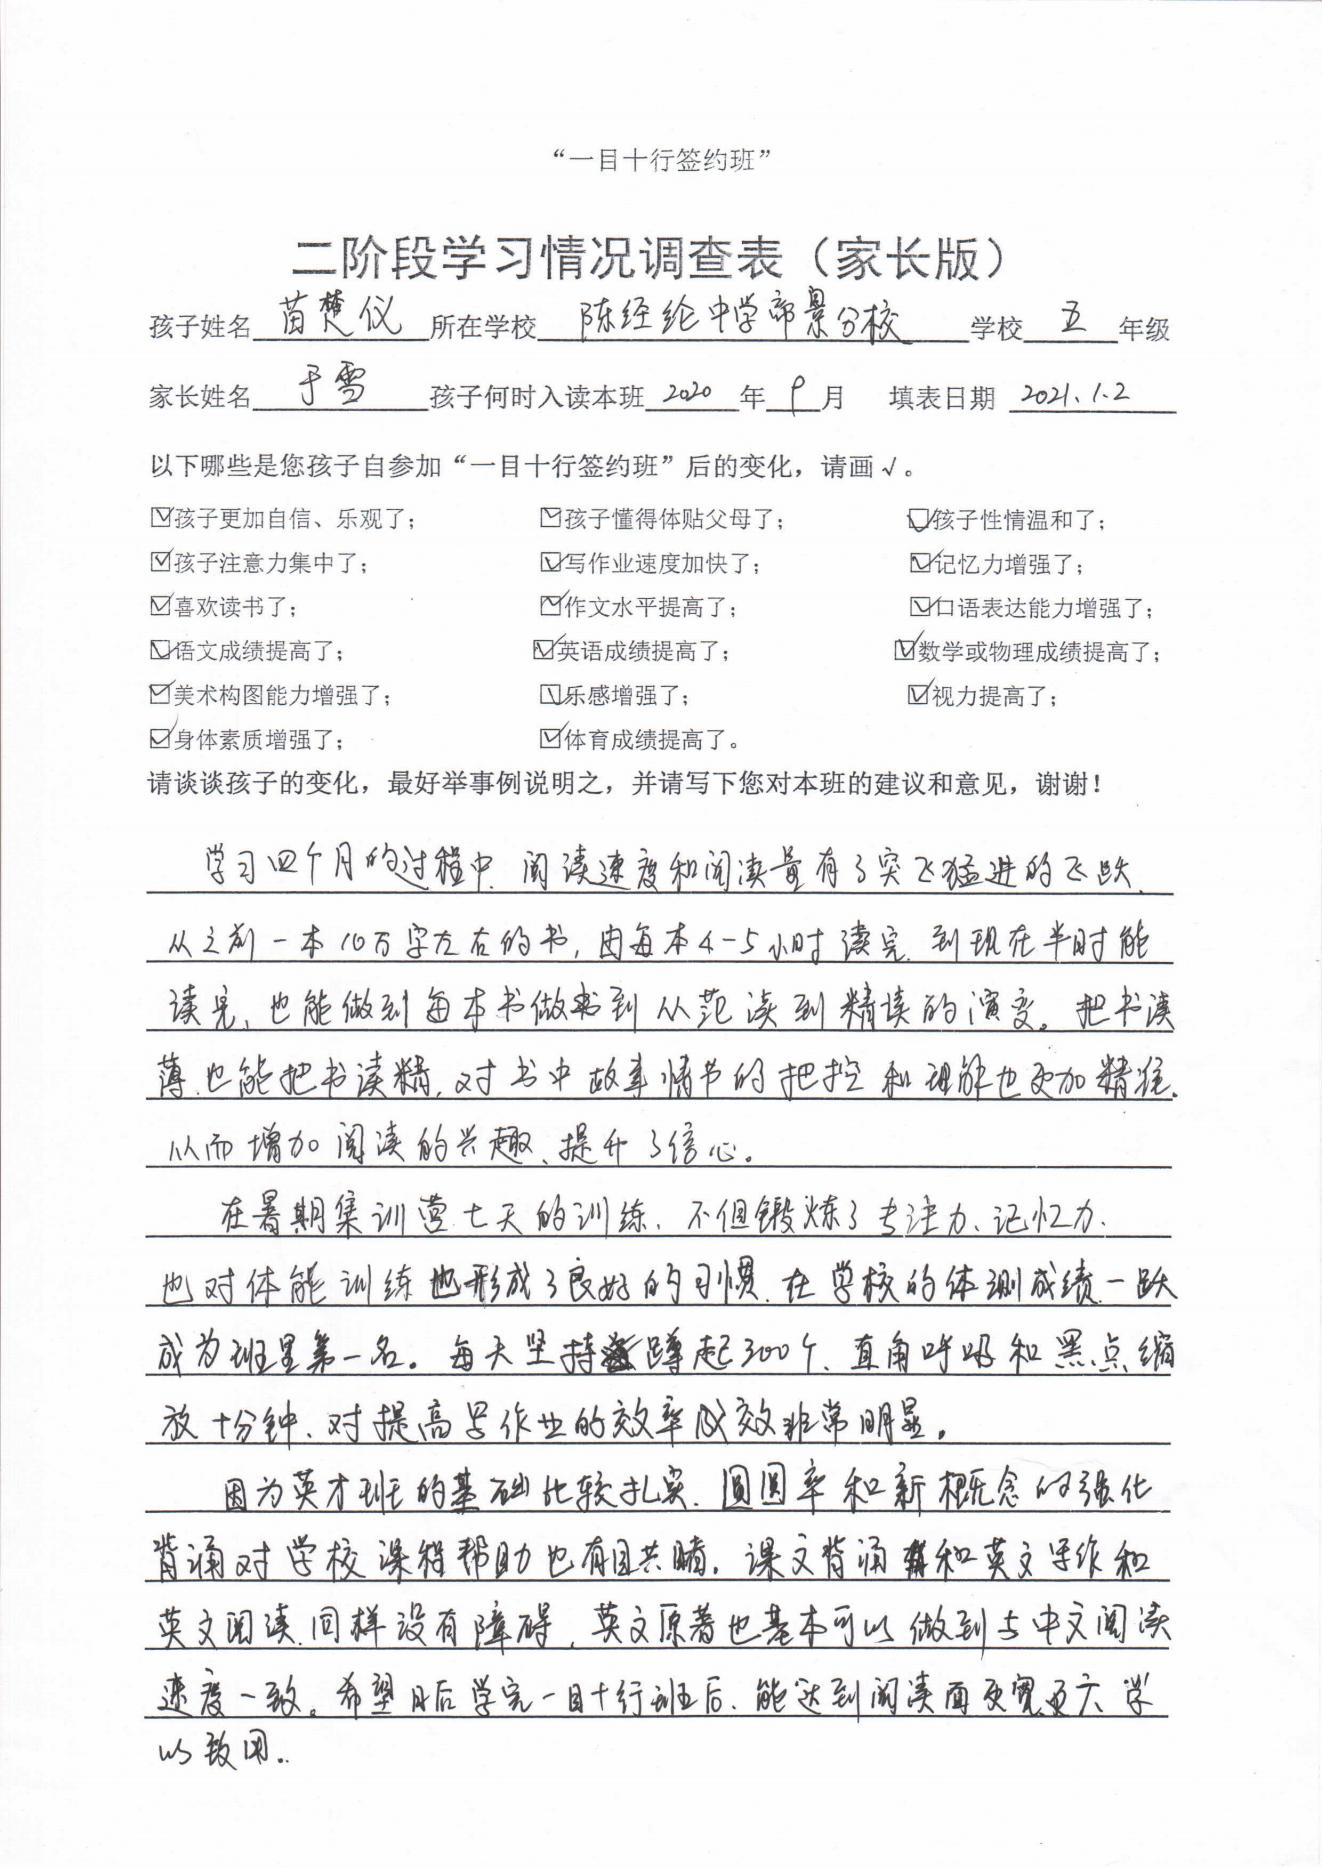 “一目十行签约班”
二阶段学习情况调查表（家长版）
孩子姓名 苗楚仪 所在学校 陈经纶中学帝景分校 学校 五 年级
家长姓名 于雪 孩子何时入读本班 2020 年 9 月 填表日期 2021.1.2
以下哪些是您孩子自参加“一目十行签约班”后的变化，请画√。
☑孩子更加自信、乐观了； ☑孩子懂得体贴父母了； ☑孩子性情温和了；
☑孩子注意力集中了； ☑写作业速度加快了； ☑记忆力增强了；
☑喜欢读书了； ☑作文水平提高了； ☑口语表达能力增强了；
☑语文成绩提高了； ☑英语成绩提高了； ☑数学或物理成绩提高了；
☑美术构图能力增强了； ☑乐感增强了； ☑视力提高了；
☑身体素质增强了； ☑体育成绩提高了。
请谈谈孩子的变化，最好举事例说明之，并请写下您对本班的建议和意见，谢谢！
学习四个月的过程中、阅读速度和阅读量有了突飞猛进的飞跃、
从之前一本10万字左右的书，由每本4-5小时读完、到现在半时能
读完、也能做到每本书做到从范读到精读的演变。把书读
薄、也能把书读精，对书中故事情节的把控和理解也更加精准、
从而增加阅读的兴趣、提升了信心。
在暑期集训营七天的训练、不但锻炼了专注力、记忆力、
也对体能训练也形成了良好的习惯、在学校的体测成绩一跃
成为班里第一名。每天坚持蹲起300个、直角呼吸和黑点缩
放十分钟、对提高写作业的效率成效非常明显。
因为英才班的基础比较扎实、圆圆率和新概念的强化
背诵对学校课程帮助也有目共睹。课文背诵和英文写作和
英文阅读、同样没有障碍，英文原著也基本可以做到与中文阅读
速度一致。希望日后学完一目十行班后、能达到阅读面更宽更广学
以致用。